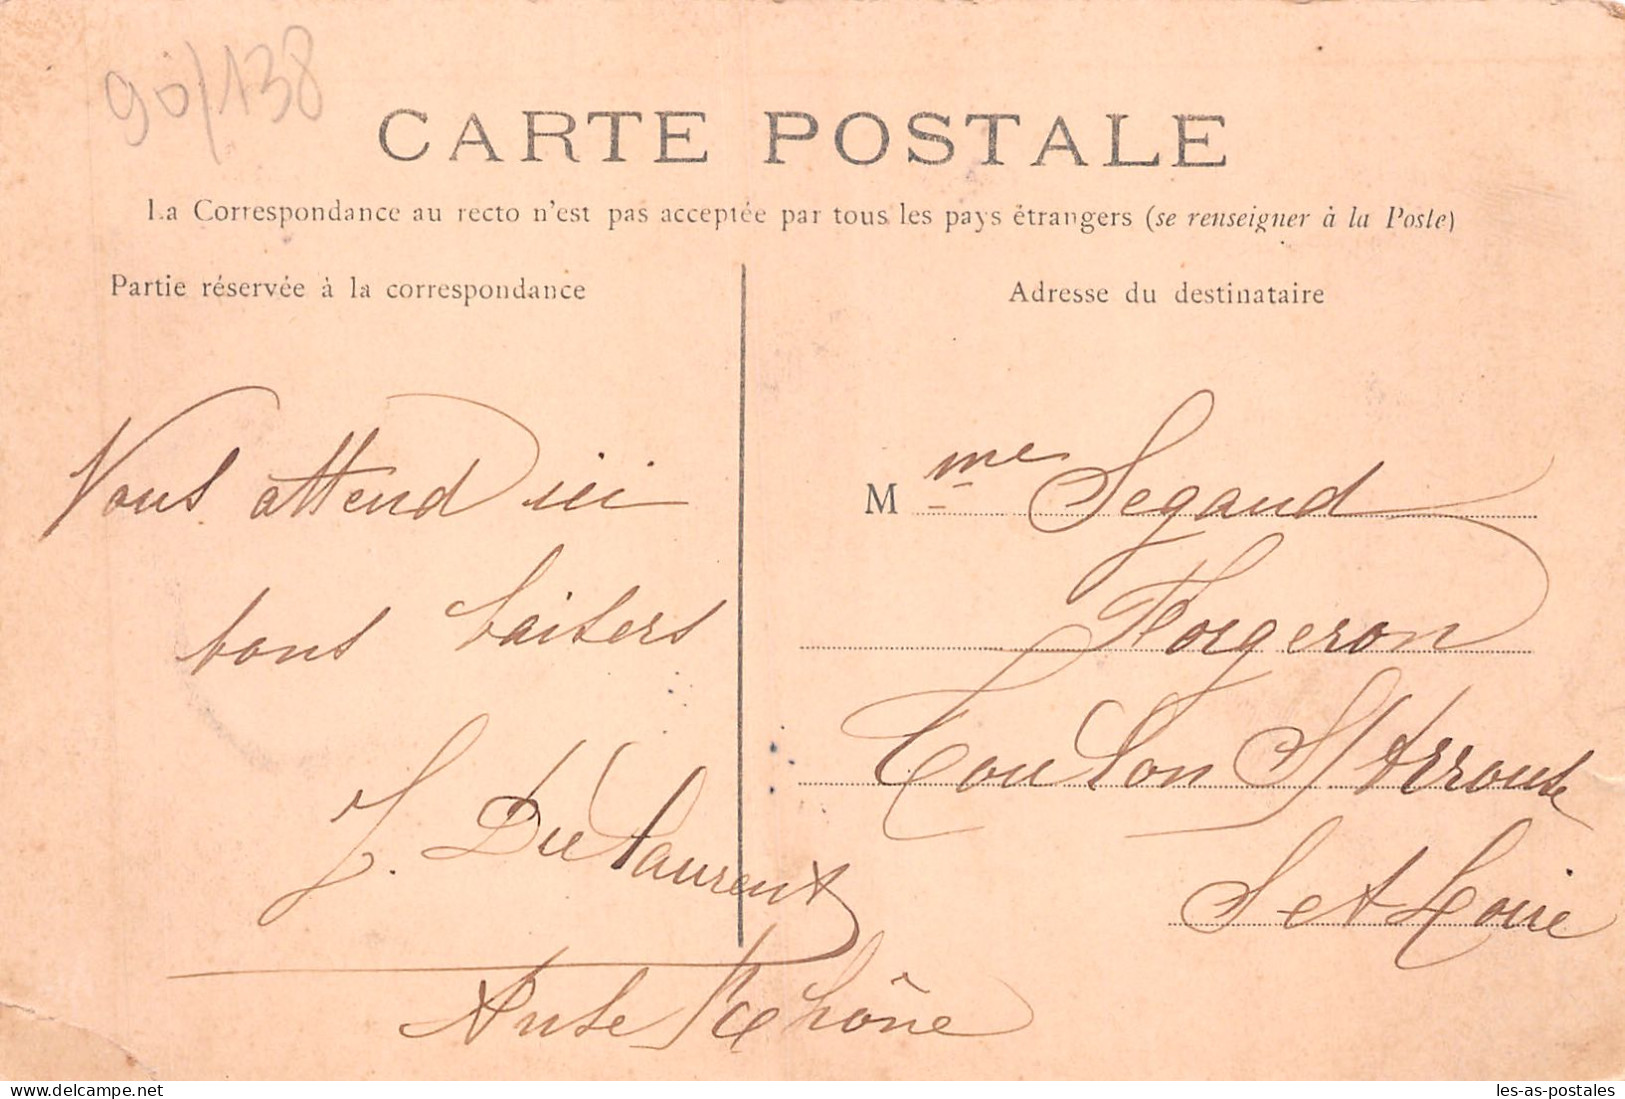 90/138
CARTE POSTALE
La Correspondance au recto n'est pas acceptée par tous les pays étrangers (se renseigner à la Poste)
Partie réservée à la correspondance
Adresse du destinataire
Vous attend ici
bons baisers
J. Dulaurent
Anse Rhône
Mme Segaud
Forgeron
Toulon S/ Arroux
S et Loire
delcampe.net
les-as-postales